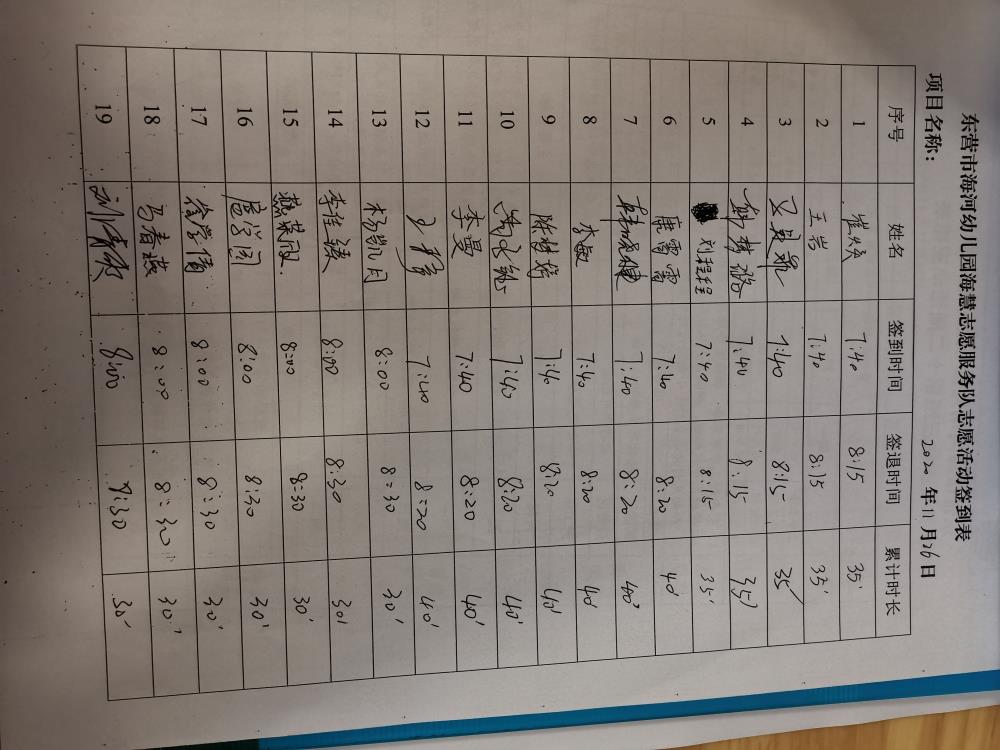 东营市海河幼儿园海慧志愿服务队志愿活动签到表
项目名称： 2020年11月26日
序号 姓名 签到时间 签退时间 累计时长
1 7:40 8:15 35'
2 王岩 7:40 8:15 35'
3 7:40 8:15 35'
4 7:40 8:15 35'
5 刘程程 7:40 8:15 35'
6 康雪雷 7:40 8:20 40'
7 7:40 8:20 40'
8 李敏 7:40 8:20 40'
9 陈梦瑶 7:40 8:20 40'
10 7:40 8:20 40'
11 李曼 7:40 8:20 40'
12 7:40 8:20 40'
13 杨凯月 8:00 8:30 30'
14 李佳臻 8:00 8:30 30'
15 燕荣风 8:00 8:30 30'
16 扈学闯 8:00 8:30 30'
17 徐学倩 8:00 8:30 30'
18 马春燕 8:00 8:30 30'
19 8:00 8:30 30'